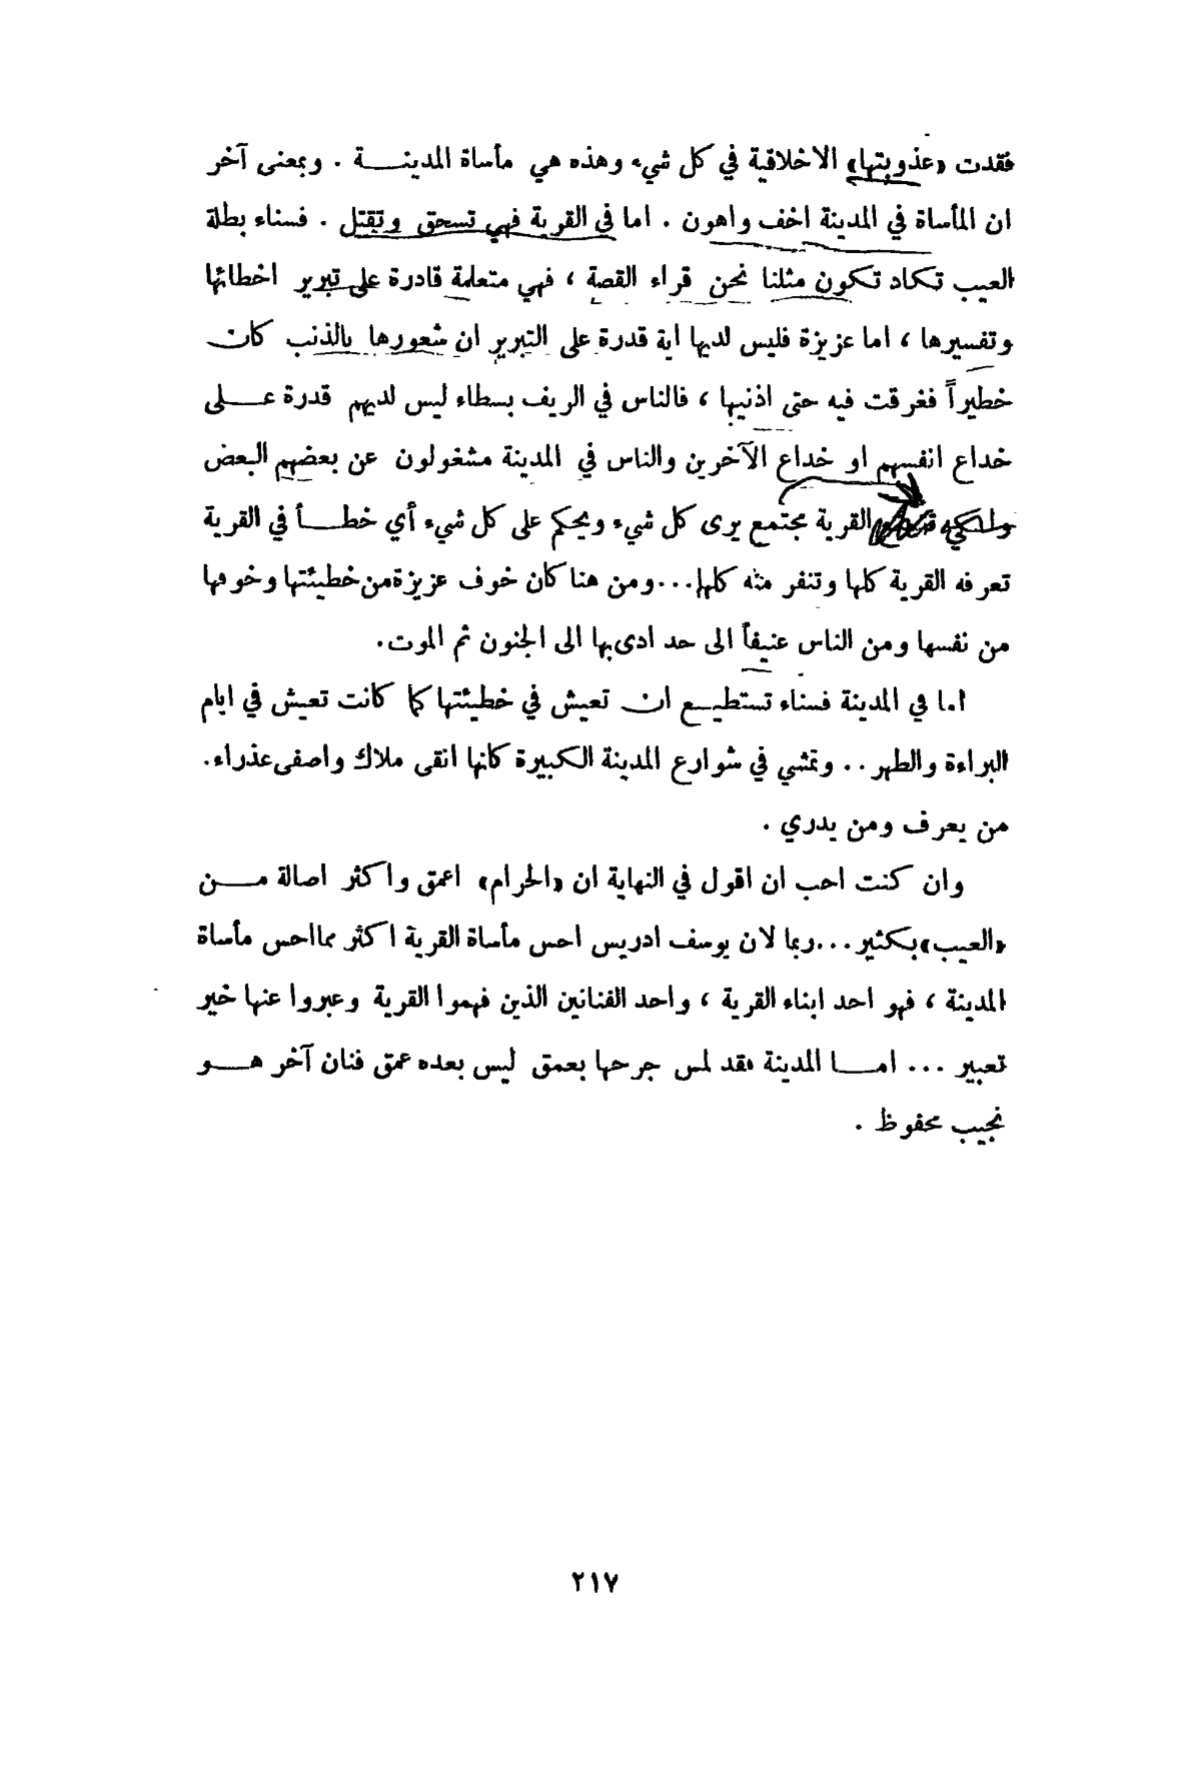 فقدت «عذوبتها» الاخلاقية في كل شيء وهذه هي مأساة المدينـــة . وبمعنى آخر
ان المأساة في المدينة اخف واهون . اما في القرية فهي تسحق وتقتل . فسناء بطلة
العيب تكاد تكون مثلنا نحن قراء القصة ، فهي متعلمة قادرة على تبرير اخطائها
وتفسيرها ، اما عزيزة فليس لديها اية قدرة على التبرير ان شعورها بالذنب كان
خطيراً فغرقت فيه حتى اذنيها ، فالناس في الريف بسطاء ليس لديهم قدرة عـــلى
خداع انفسهم او خداع الآخرين والناس في المدينة مشغولون عن بعضهم البعض
القرية مجتمع يرى كل شيء ويحكم على كل شيء أي خطـــأ في القرية
تعرفه القرية كلها وتنفر منه كلها...ومن هنا كان خوف عزيزة من خطيئتها وخوفها
من نفسها ومن الناس عنيفاً الى حد ادى بها الى الجنون ثم الموت.
اما في المدينة فسناء تستطيـــع ان تعيش في خطيئتها كما كانت تعيش في ايام
البراءة والطهر .. وتمشي في شوارع المدينة الكبيرة كانها انقى ملاك واصفى عذراء.
من يعرف ومن يدري .
وان كنت احب ان اقول في النهاية ان «الحرام» اعمق واكثر اصالة مـــن
«العيب» بكثير...ربما لان يوسف ادريس احس مأساة القرية اكثر مما احس مأساة
المدينة ، فهو احد ابناء القرية ، واحد الفنانين الذين فهموا القرية وعبروا عنها خير
تعبير ... امـــا المدينة فقد لمس جرحها بعمق ليس بعده عمق فنان آخر هـــو
نجيب محفوظ .
٢١٧